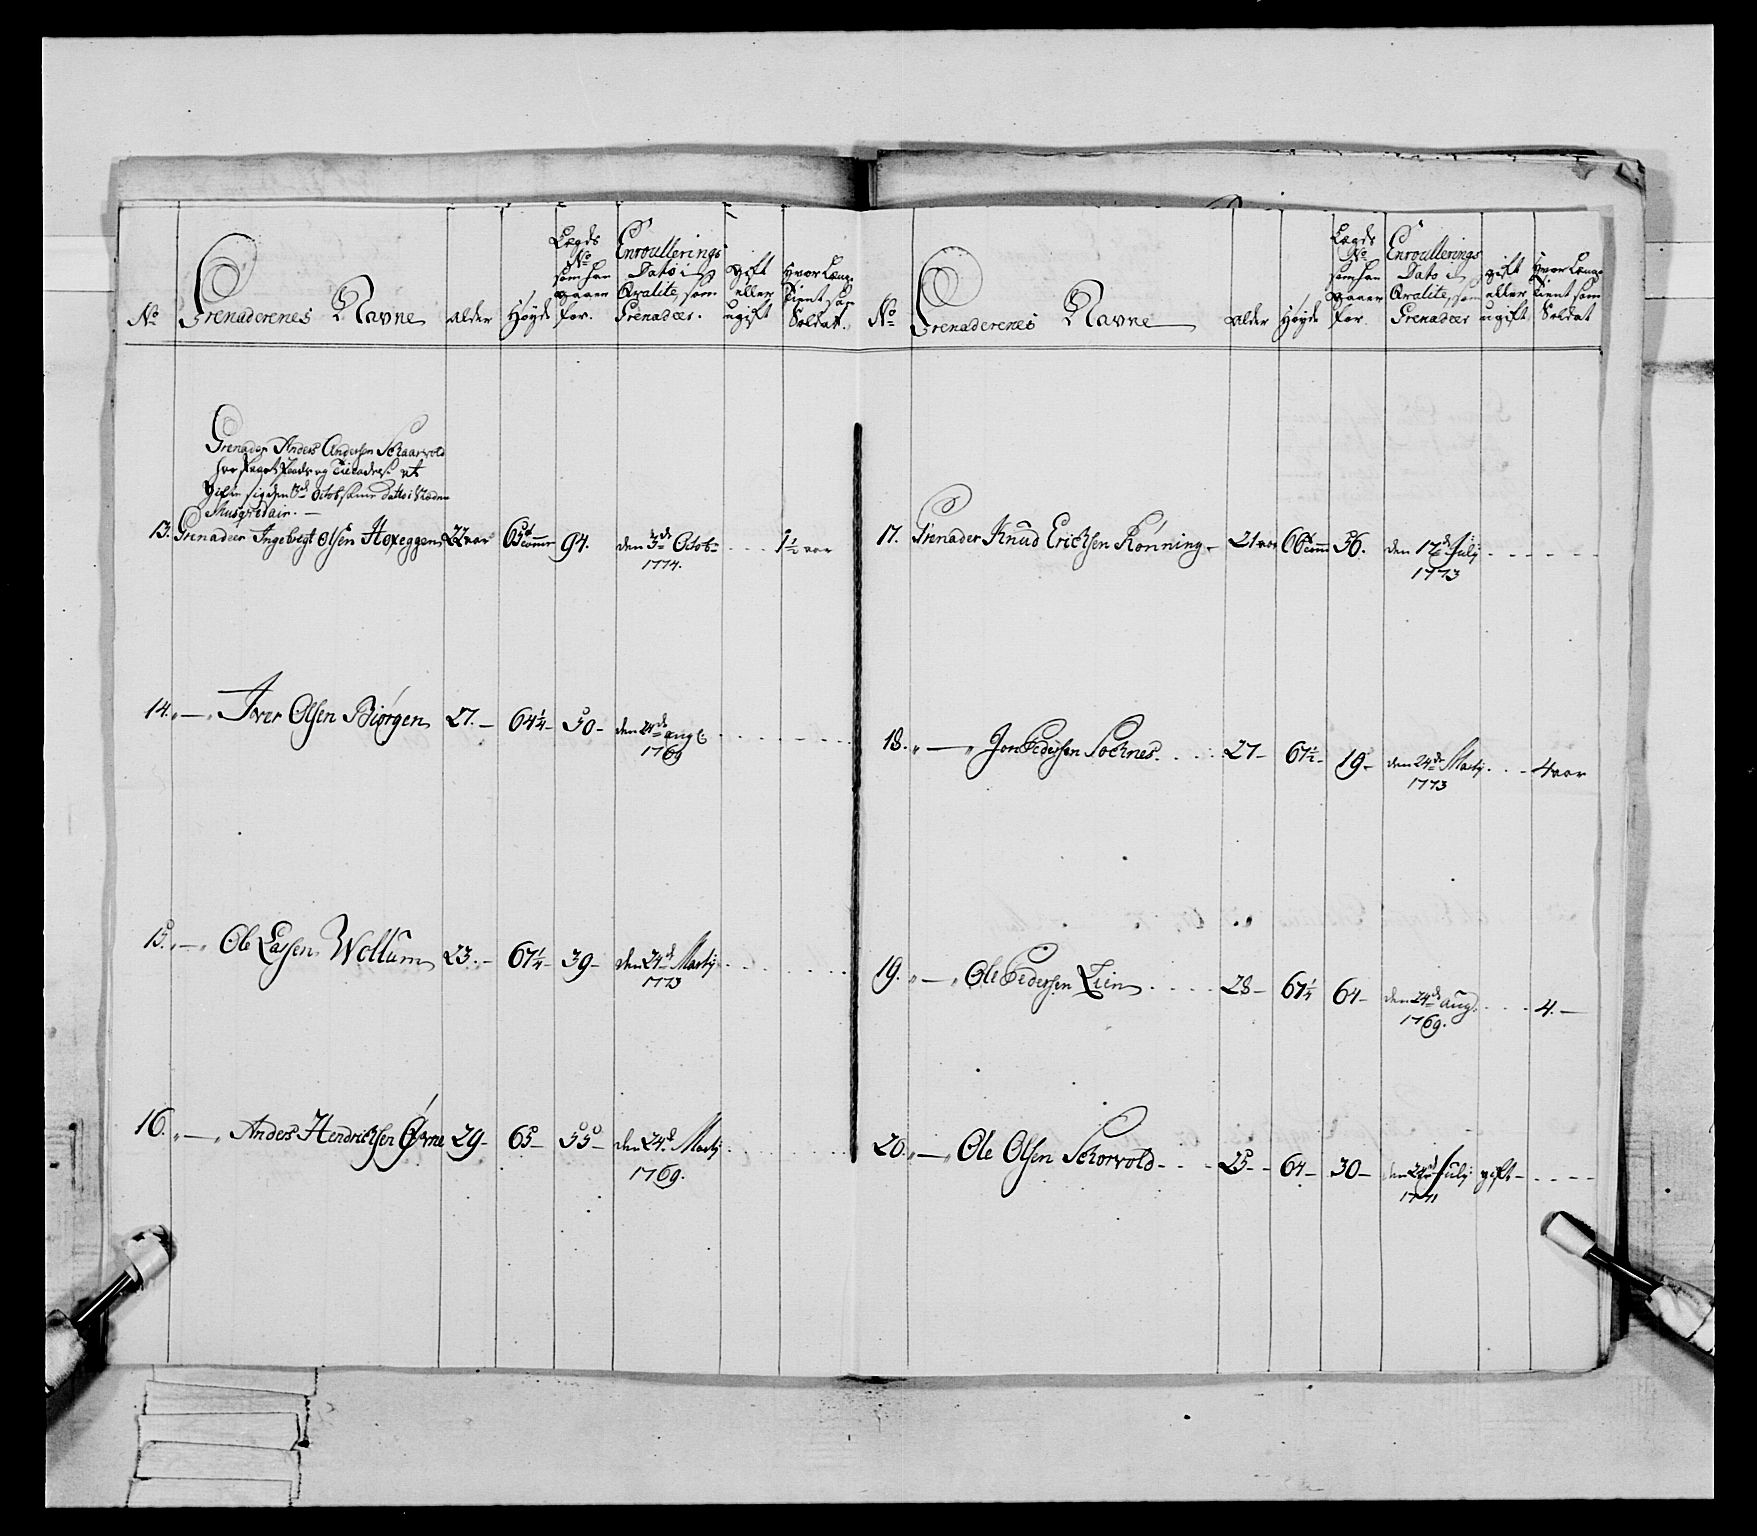 No
Grenaderenes Navne
alder
Høyde
Lægds
No
som han
for.
Enroullerings
Dato i
Qvalite, som
Grenadeer.
gift
eller
ugift
hvor Længe
tient som
Soldat.
Grenader Anders Andersen Schaarvold
13. Grenadeer Ingebregt Olsen Hoxeggen 22 aar 65 94. den 3de Octob: 1½ aar
1774.
14. „ — „ Iver Olsen Biørgen 27. — 64¼ — 50 — den 24de aug:
1769
15. „ — „ Ole Lassen Wollum 23. — 67¼ — 39 — den 24de Martij
1773
16. „ — „ Anders Hendrichsen Øyrne 29 — 65 — 55 — den 24de Martij
1769.
No
Grenaderenes Navne
alder
Høyde
Lægds
No
som han
for.
Enroullerings
Dato i
Qvalite, som
Grenadeer
gift
eller
ugift
hvor Længe
tient som
Soldat
17. Grenader Knud Erichsen Rønning — 21 aar 66 36. den 12de Julij
1773
18. „ — „ Jon Pedersen Sochnes. 27 — 67½ — 19 — den 24de Martij 4 aar
1773
19. „ — „ Ole Pedersen Lien 28 — 67¼ 64 — den 24de aug: 4. —
1769.
20. „ — „ Ole Olsen Schorvold 25 — 64 — 30 — den 24de Julij gift —
1771